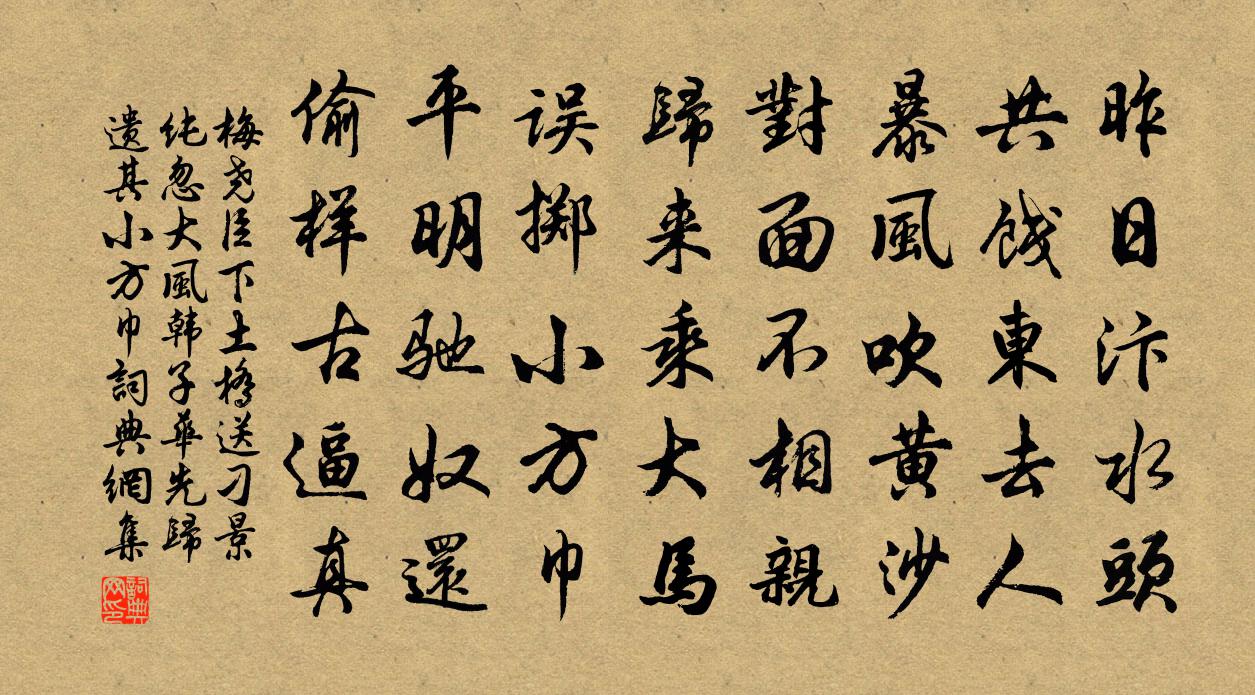 昨日汴水頭
共餞東去人
暴風吹黄沙
對面不相親
歸来乘大馬
误掷小方巾
平明馳奴還
偷样古逼真
梅尧臣下土橋送刁景
纯忽大風韩子華先歸
遗其小方巾詞典網集
詞典
网印